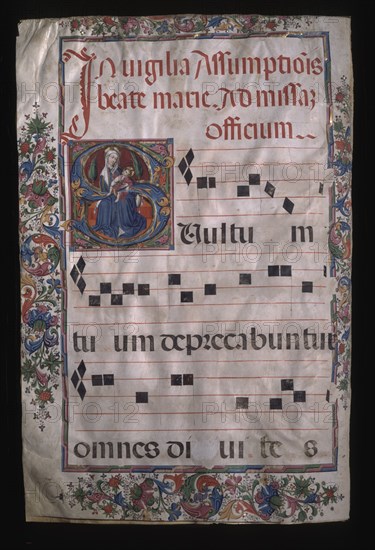 In vigilia Assumptiõis
beate marie. Ad missaʒ
officium
Vultu m
tu um deprecabuntur
omnes di ui te s
PHOTO 12